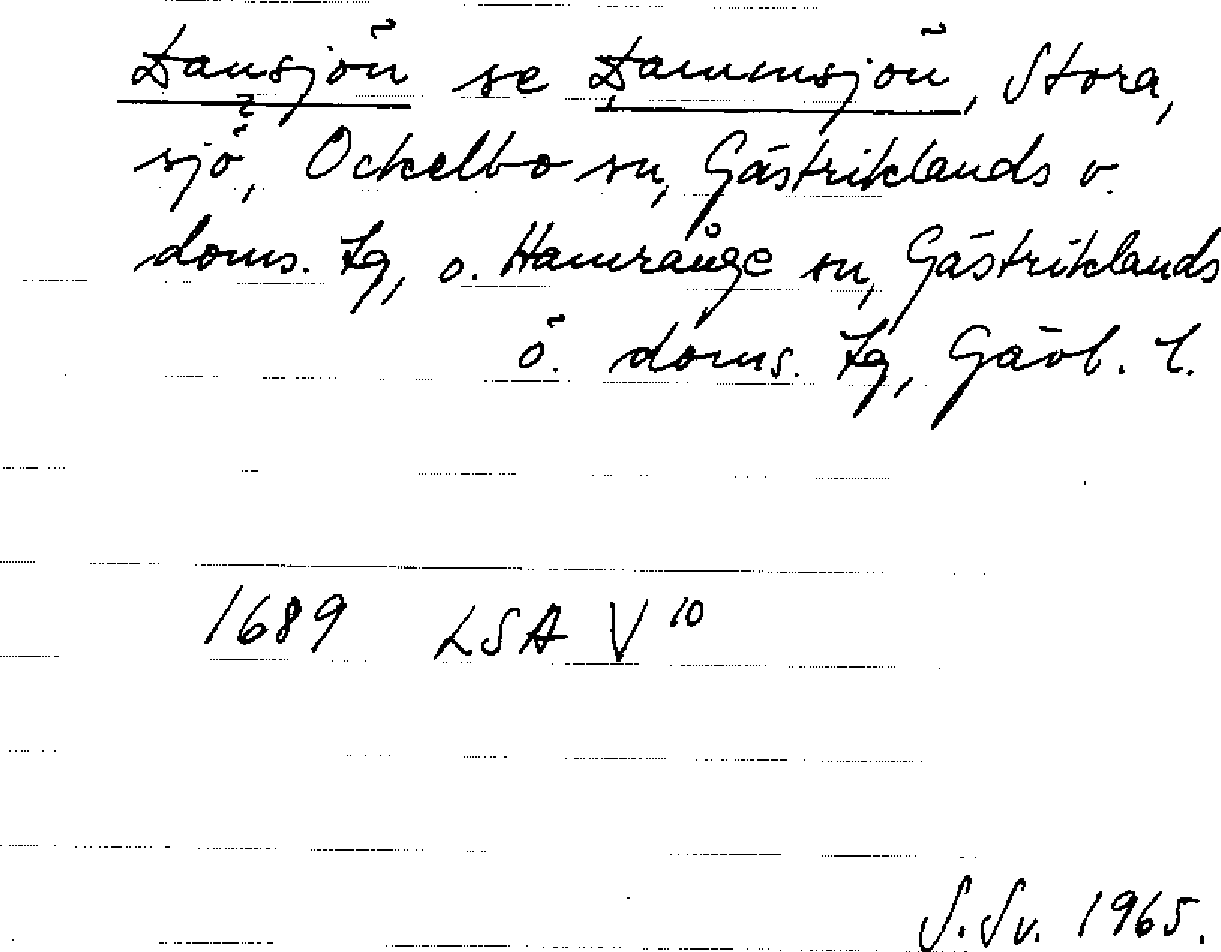 Dansjön se Dammsjön, Stora,
sjö, Ockelbo sn, Gästriklands v.
doms. tg, o. Hamrånge sn, Gästriklands
ö. doms. tg, Gävb. l.
1689 LSA V 10
S. Sv. 1965.